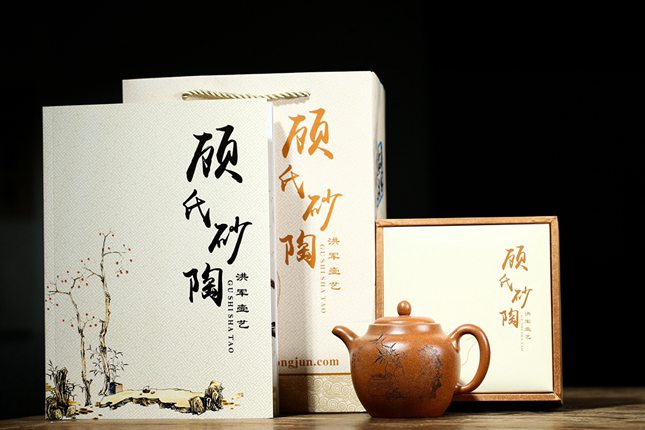 顾氏砂陶
洪军壶艺
GU SHI SHA TAO
顾氏砂陶
洪军壶艺
GU SHI SHA TAO
ongjun.com
顾氏砂陶
洪军壶艺